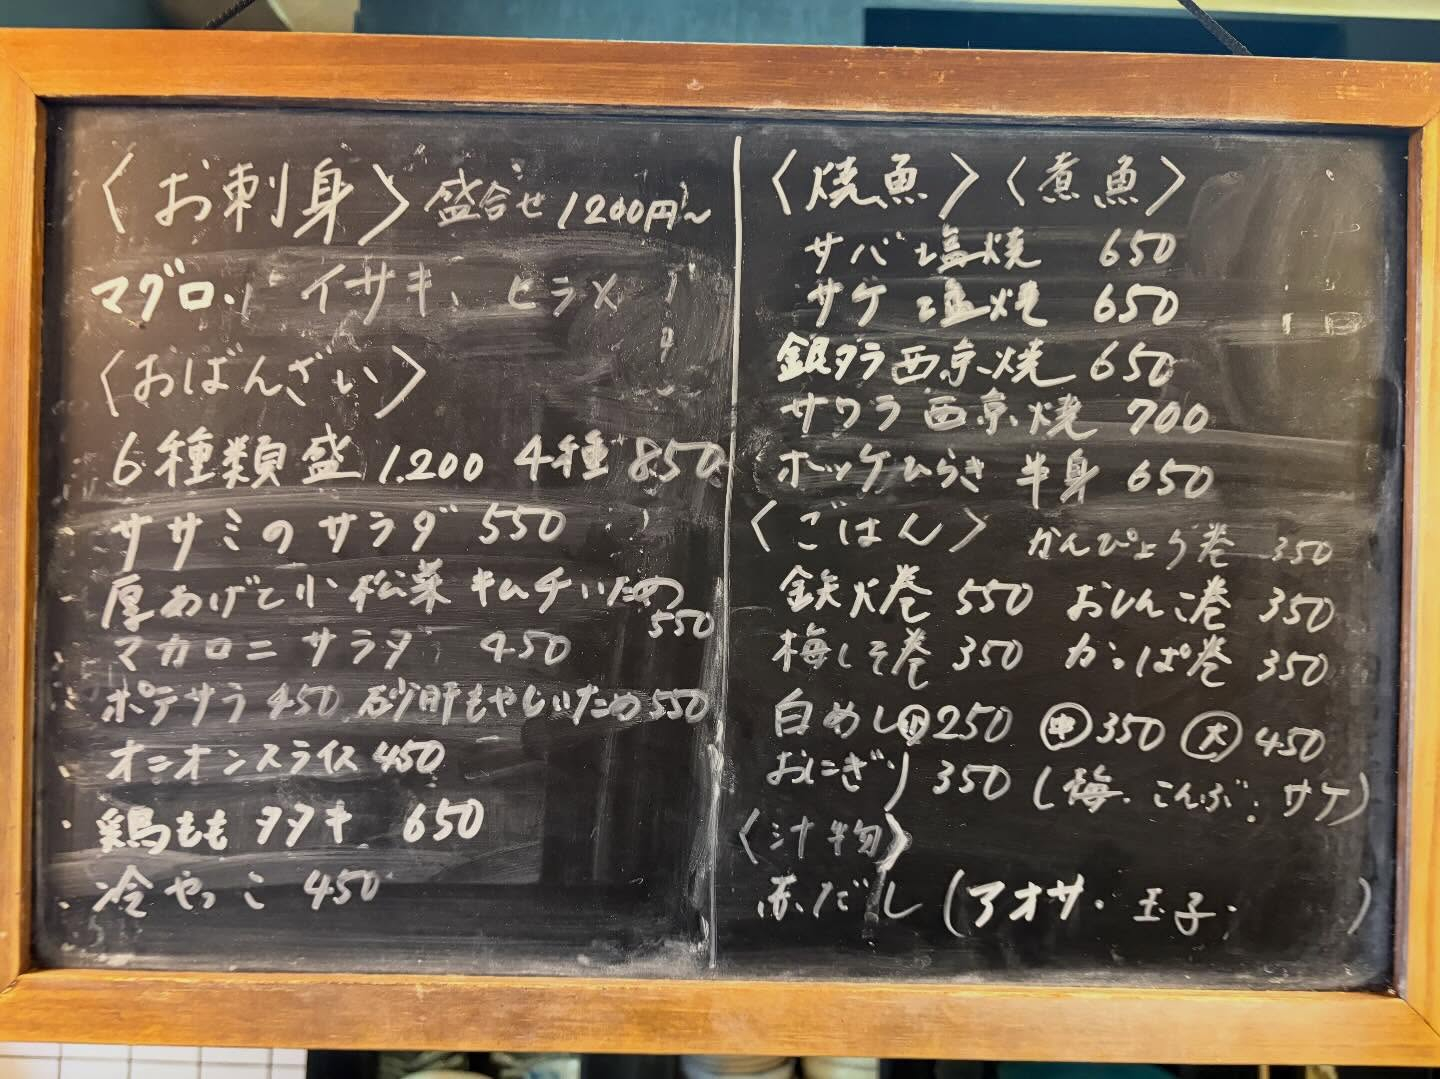 〈お刺身〉盛合せ 1200円〜
マグロ、イサキ、ヒラメ
〈おばんざい〉
6種類盛 1,200 4種 850
ササミのサラダ 550
厚あげと小松菜キムチいため 550
マカロニサラダ 450
ポテサラ 450 砂肝もやしいため 550
オニオンスライス 450
・鶏ももタタキ 650
・冷やっこ 450
〈焼魚〉〈煮魚〉
サバ塩焼 650
サケ塩焼 650
銀ダラ西京焼 650
サワラ西京焼 700
ホッケひらき 半身 650
〈ごはん〉 かんぴょう巻 350
鉄火巻 550 おしんこ巻 350
梅しそ巻 350 かっぱ巻 350
白めし 小 250 中 350 大 450
おにぎり 350 (梅・こんぶ・サケ)
〈汁物〉
赤だし (アオサ・玉子・ )